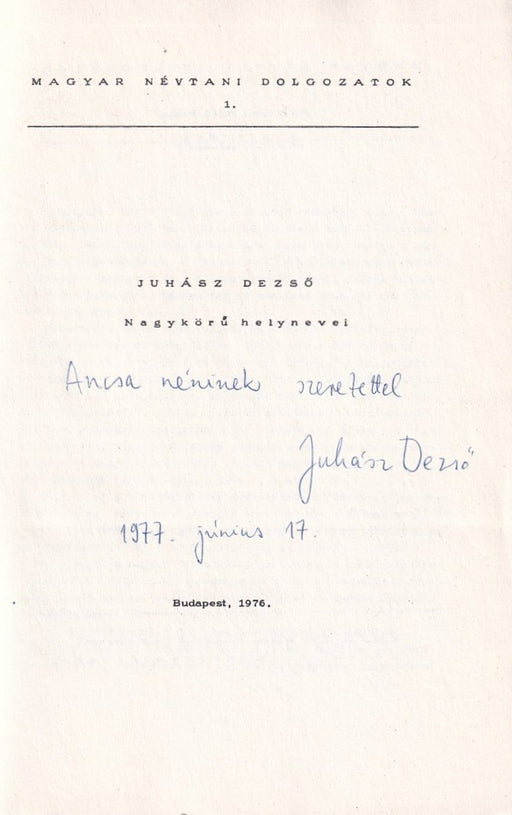 MAGYAR NÉVTANI DOLGOZATOK
1.
JUHÁSZ DEZSŐ
Nagykörű helynevei
Ancsa néninek szeretettel
Juhász Dezső
1977. június 17.
Budapest, 1976.